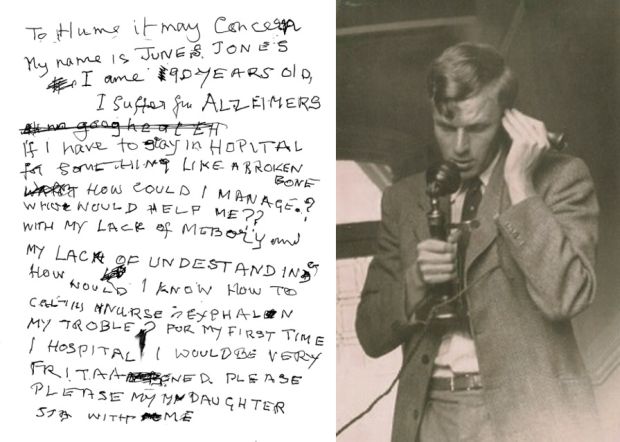 To Hume it may Concern
My name is JUNES JONES
I ame 90 YEARS OLD,
I Suffer fm ALZEIMERS
If I have to stay in HOPITAL
for SOMETHING LIKE A BROKEN
BONE
HOW COULD I MANAGE.?
WOULD HELP ME??
WITH MY LACK OF MEBORY and
MY LACK OF UNDESTANDING
HOW WOULD I KNOW HOW TO
NURSE
MY TROBLE? FOR MY FIRST TIME
I HOSPITAL I WOULD BE VERY
PLEASE
PLEASE MY DAUGHTER
WITH ME